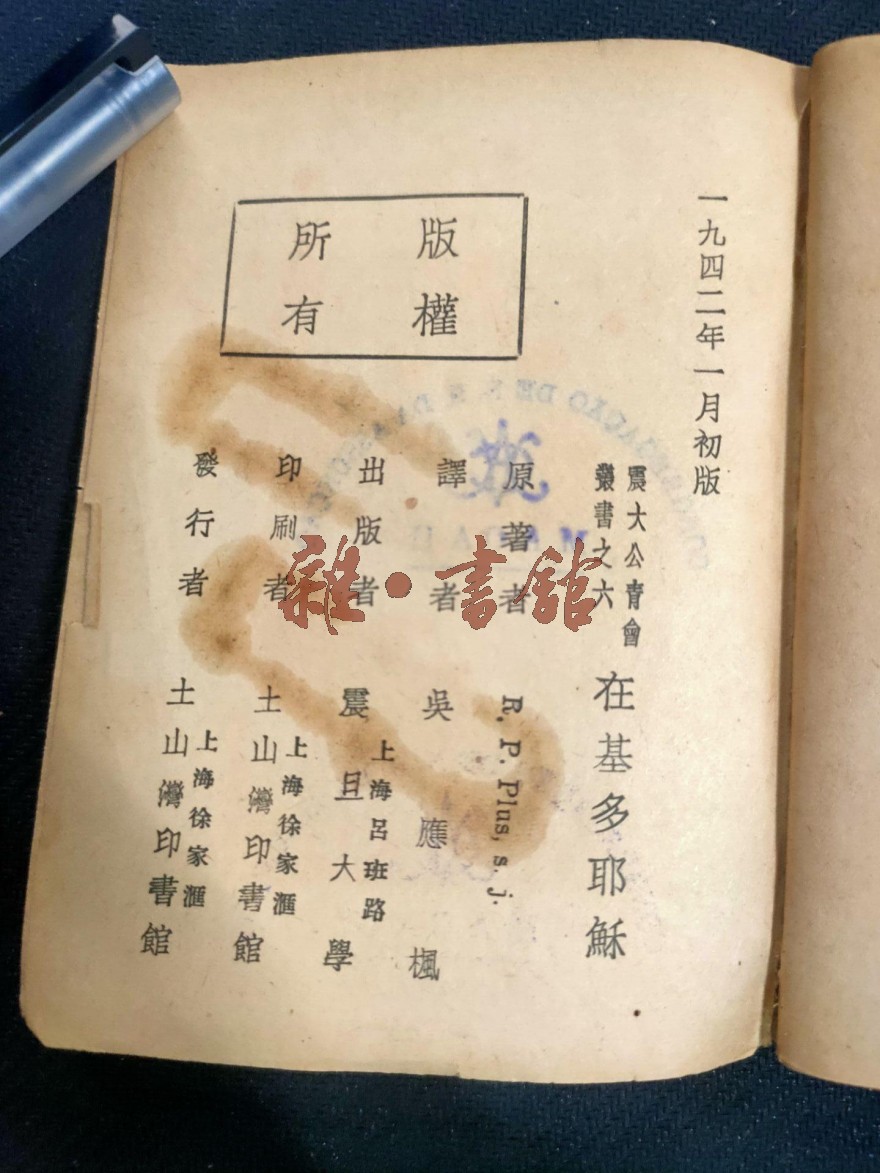 一九四二年一月初版
震大公青會
叢書之六
在基多耶穌
原著者 R. P. Plus, s. j.
譯者 吳應楓
出版者 上海呂班路
震旦大學
印刷者 上海徐家滙
土山灣印書館
發行者 上海徐家滙
土山灣印書館
版權
所有
雜·書館